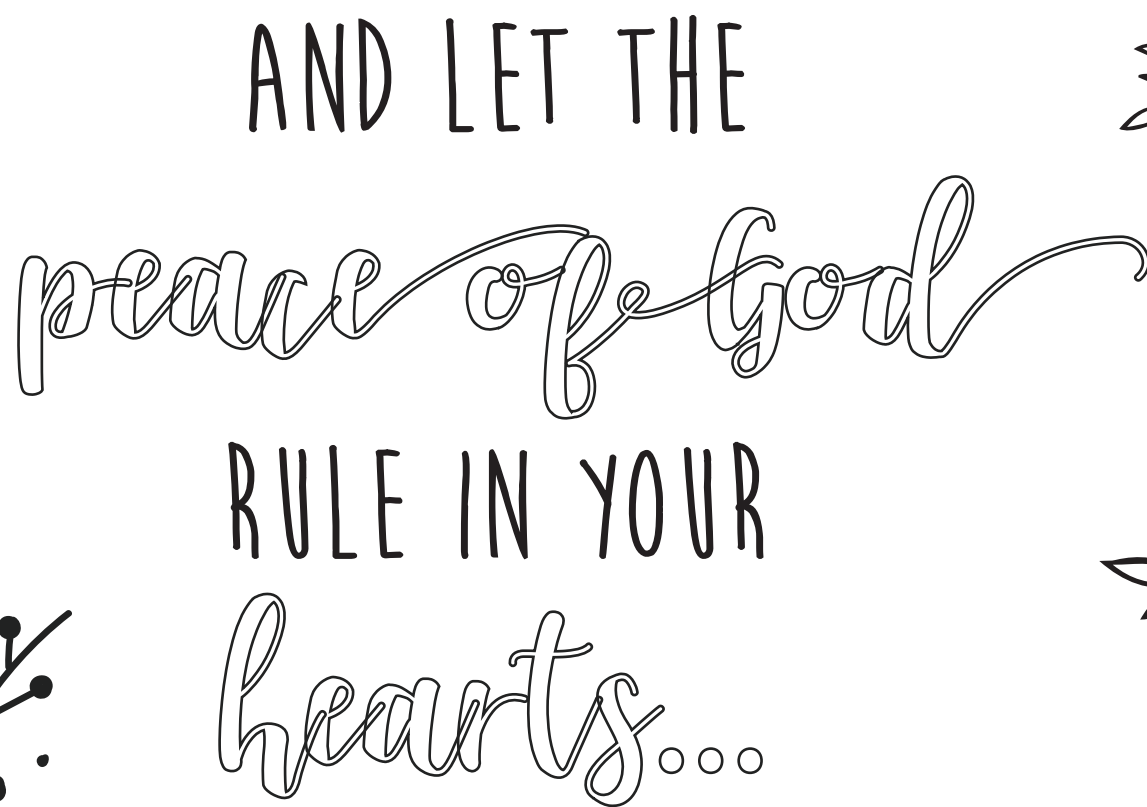 AND LET THE
peace of God
RULE IN YOUR
hearts...